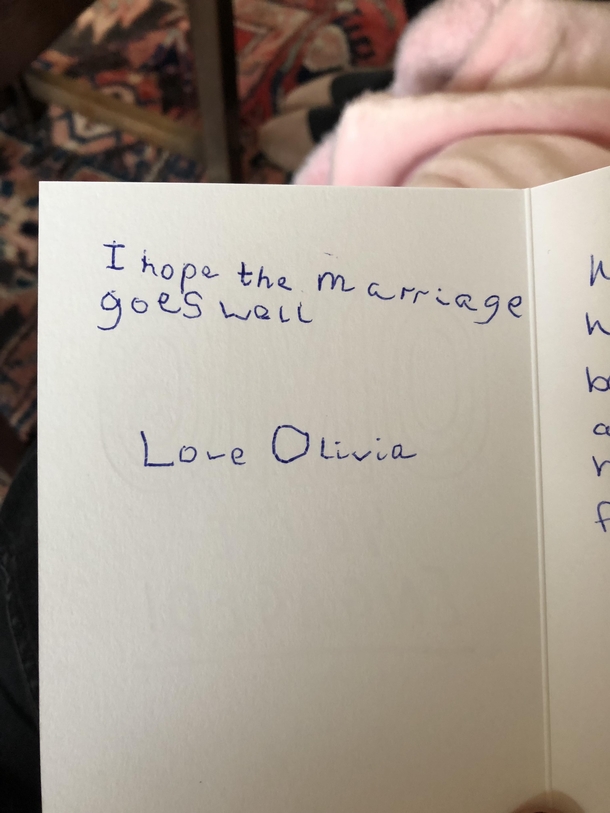 I hope the marriage
goes well
Love Olivia